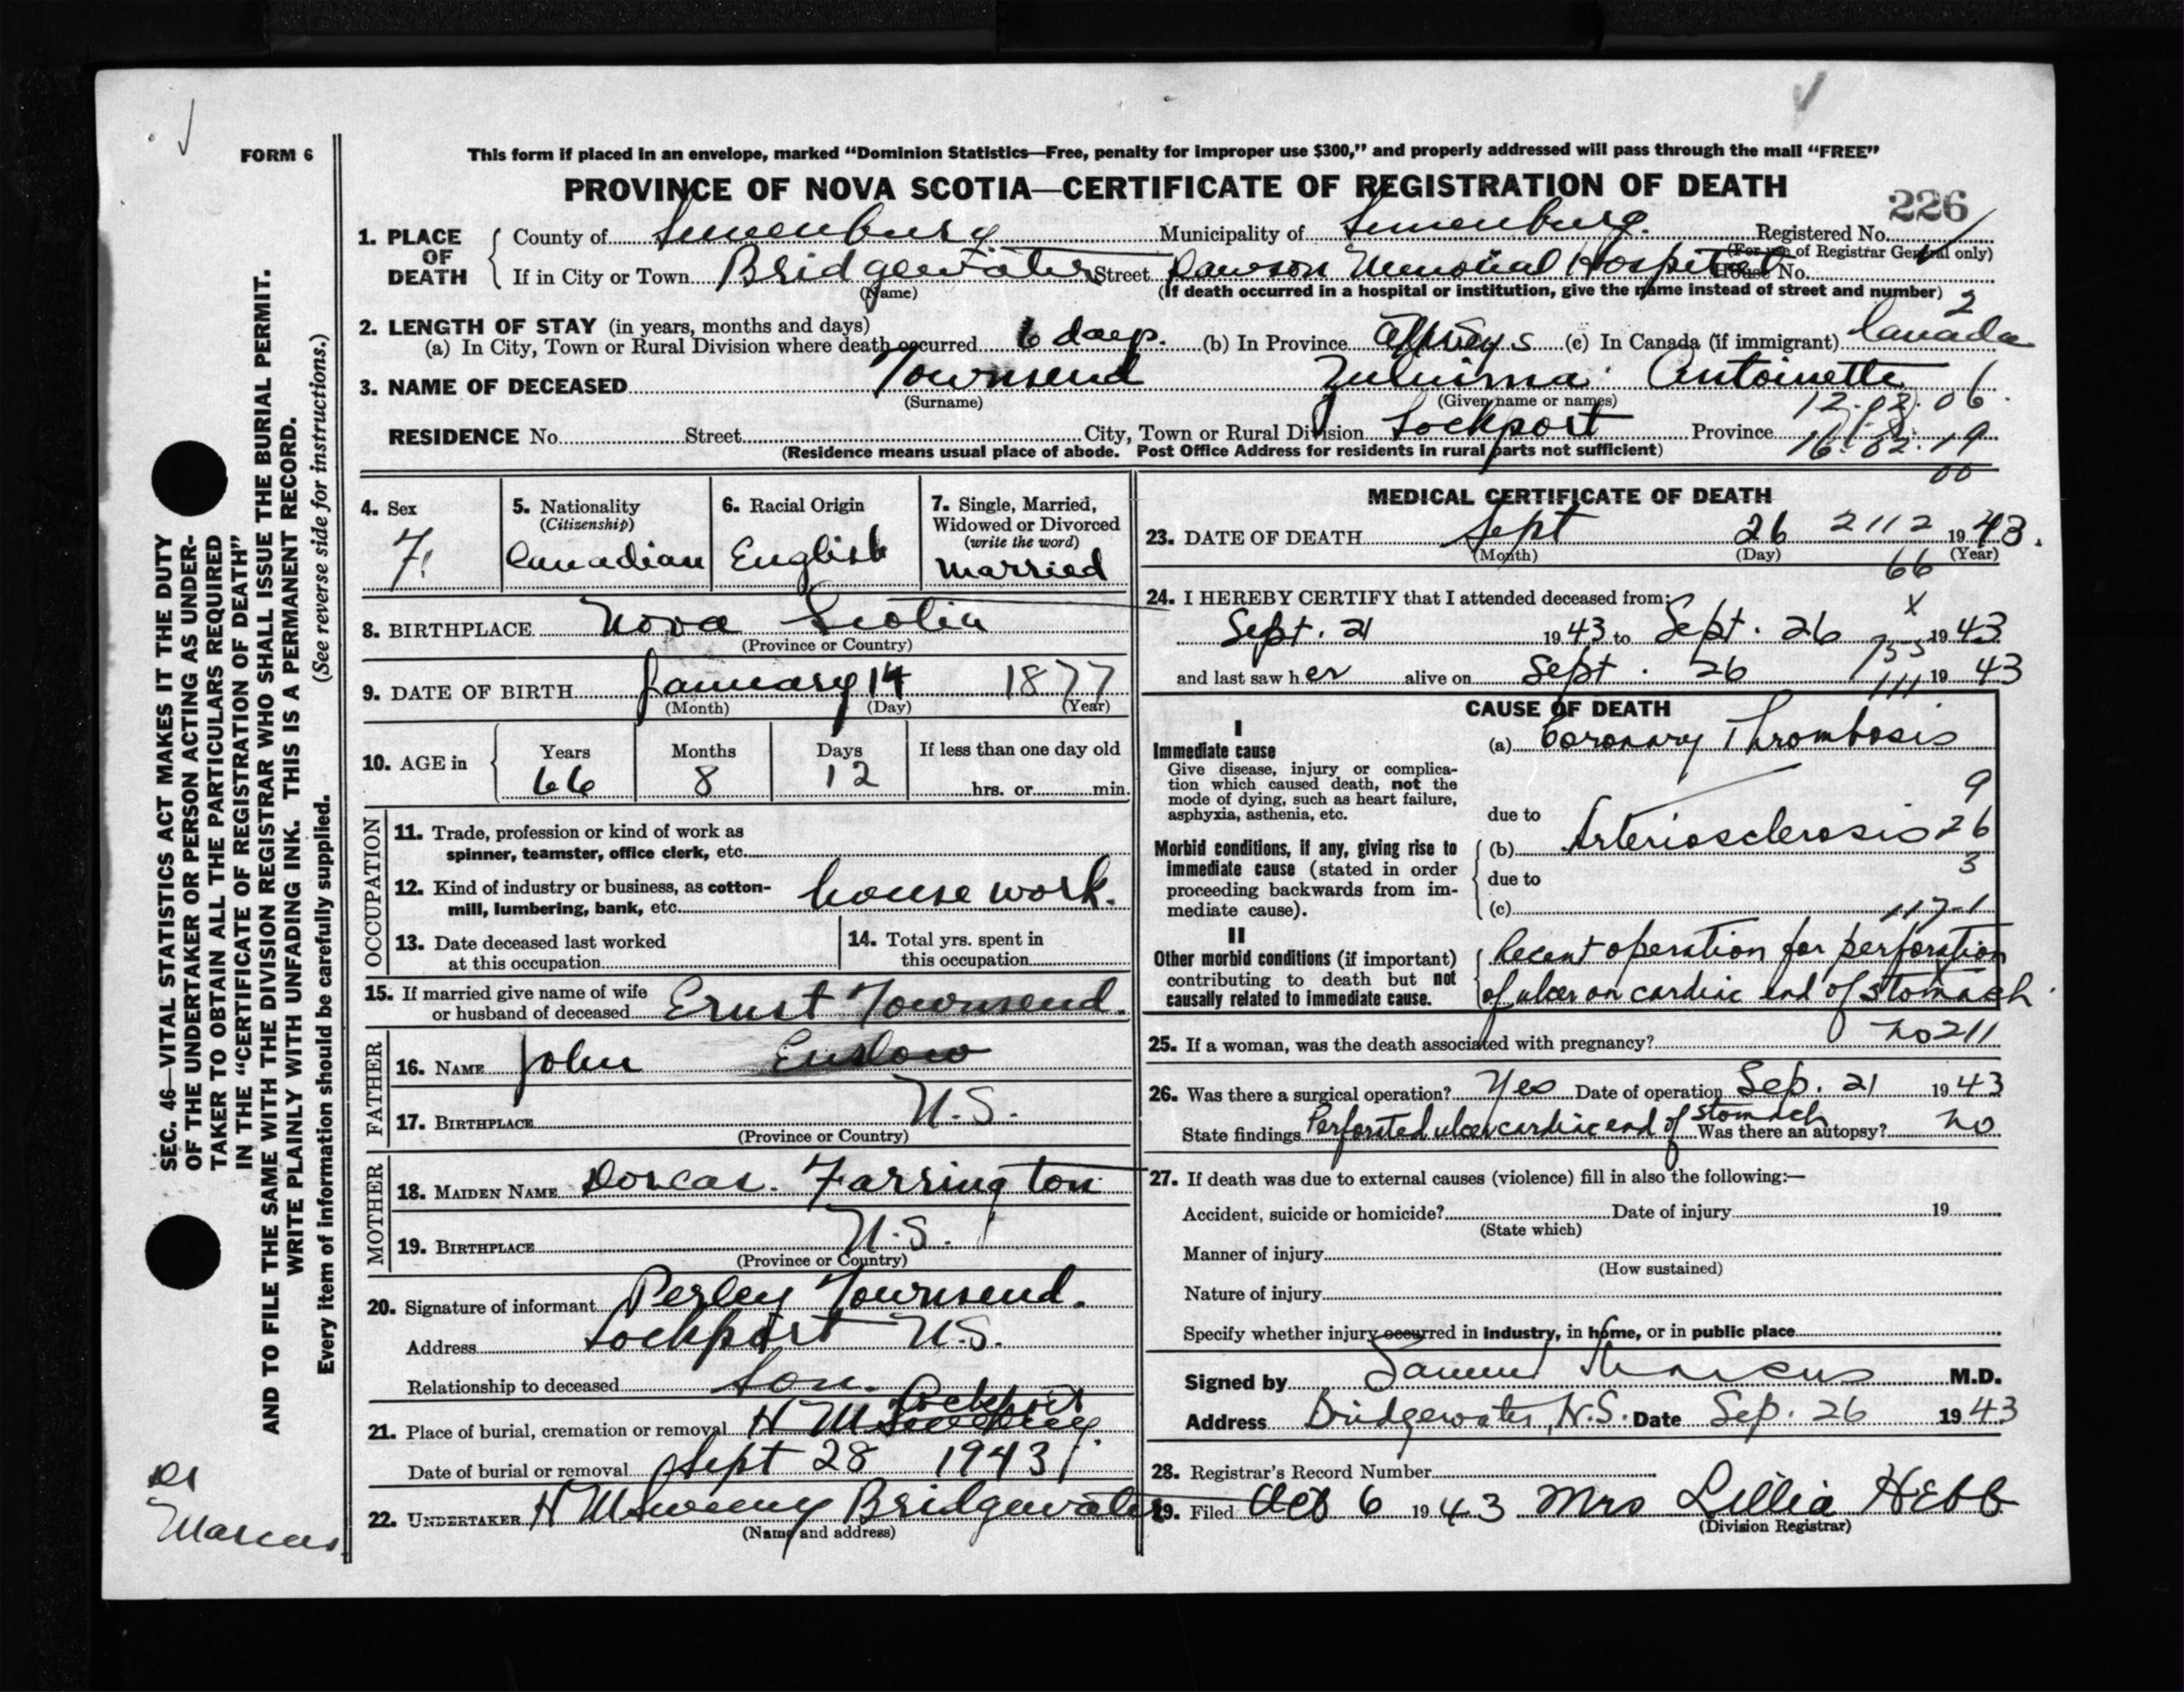 FORM 6
This form if placed in an envelope, marked “Dominion Statistics—Free, penalty for improper use $300,” and properly addressed will pass through the mail “FREE”
PROVINCE OF NOVA SCOTIA—CERTIFICATE OF REGISTRATION OF DEATH
226
1. PLACE OF DEATH
County of Lunenburg Municipality of Lunenburg. Registered No.
(For use of Registrar General only)
If in City or Town Bridgewater Street Dawson Memorial Hospital House No.
(Name) (If death occurred in a hospital or institution, give the name instead of street and number) 2
2. LENGTH OF STAY (in years, months and days)
(a) In City, Town or Rural Division where death occurred 6 days. (b) In Province always (c) In Canada (if immigrant) Canada
3. NAME OF DECEASED Townsend Antoinette
(Surname) (Given name or names)
12.02.06
RESIDENCE No. Street City, Town or Rural Division Lockport Province
16.02.19
(Residence means usual place of abode. Post Office Address for residents in rural parts not sufficient)
00
4. Sex F.
5. Nationality (Citizenship) Canadian
6. Racial Origin English
7. Single, Married, Widowed or Divorced (write the word) Married
8. BIRTHPLACE Nova Scotia
(Province or Country)
9. DATE OF BIRTH January 14 1877
(Month) (Day) (Year)
10. AGE in Years Months Days If less than one day old
66 8 12 hrs. or min.
OCCUPATION
11. Trade, profession or kind of work as
spinner, teamster, office clerk, etc.
12. Kind of industry or business, as cotton-
mill, lumbering, bank, etc. house work.
13. Date deceased last worked
at this occupation
14. Total yrs. spent in
this occupation
15. If married give name of wife
or husband of deceased Ernst Townsend.
FATHER
16. NAME John Enslow
17. BIRTHPLACE N.S.
(Province or Country)
MOTHER
18. MAIDEN NAME Dorcas. Farrington
19. BIRTHPLACE N.S.
(Province or Country)
20. Signature of informant Perley Townsend.
Address Lockport N.S.
Relationship to deceased Son.
Lockport
21. Place of burial, cremation or removal
Date of burial or removal Sept 28 1943
22. UNDERTAKER H McSweeny Bridgewater
(Name and address)
MEDICAL CERTIFICATE OF DEATH
23. DATE OF DEATH Sept 26 2112 1943.
(Month) (Day) (Year)
66
24. I HEREBY CERTIFY that I attended deceased from:
x
Sept. 21 1943 to Sept. 26 1943
and last saw her alive on Sept. 26 1943
CAUSE OF DEATH
I
Immediate cause
(a) Coronary Thrombosis
Give disease, injury or complica-
tion which caused death, not the
mode of dying, such as heart failure,
asphyxia, asthenia, etc.
9
due to
26
Morbid conditions, if any, giving rise to
immediate cause (stated in order
proceeding backwards from im-
mediate cause).
(b) Arteriosclerosis
3
due to
(c)
117-1
II
Other morbid conditions (if important)
contributing to death but not
causally related to immediate cause.
Recent operation for perforation
of ulcer on cardiac end of stomach.
25. If a woman, was the death associated with pregnancy? no 211
26. Was there a surgical operation? Yes Date of operation Sep. 21 1943
State findings Perforated ulcer cardiac end of stomach Was there an autopsy? no
27. If death was due to external causes (violence) fill in also the following:—
Accident, suicide or homicide? Date of injury 19
(State which)
Manner of injury
(How sustained)
Nature of injury
Specify whether injury occurred in industry, in home, or in public place
Signed by Samuel Marcus M.D.
Address Bridgewater, N.S. Date Sep. 26 1943
28. Registrar's Record Number
29. Filed Oct 6 1943 Mrs Lillia Hebb
(Division Registrar)
SEC. 46—VITAL STATISTICS ACT MAKES IT THE DUTY
OF THE UNDERTAKER OR PERSON ACTING AS UNDER-
TAKER TO OBTAIN ALL THE PARTICULARS REQUIRED
IN THE “CERTIFICATE OF REGISTRATION OF DEATH”
AND TO FILE THE SAME WITH THE DIVISION REGISTRAR WHO SHALL ISSUE THE BURIAL PERMIT.
WRITE PLAINLY WITH UNFADING INK. THIS IS A PERMANENT RECORD.
Every item of information should be carefully supplied. (See reverse side for instructions.)
Dr
Marcus